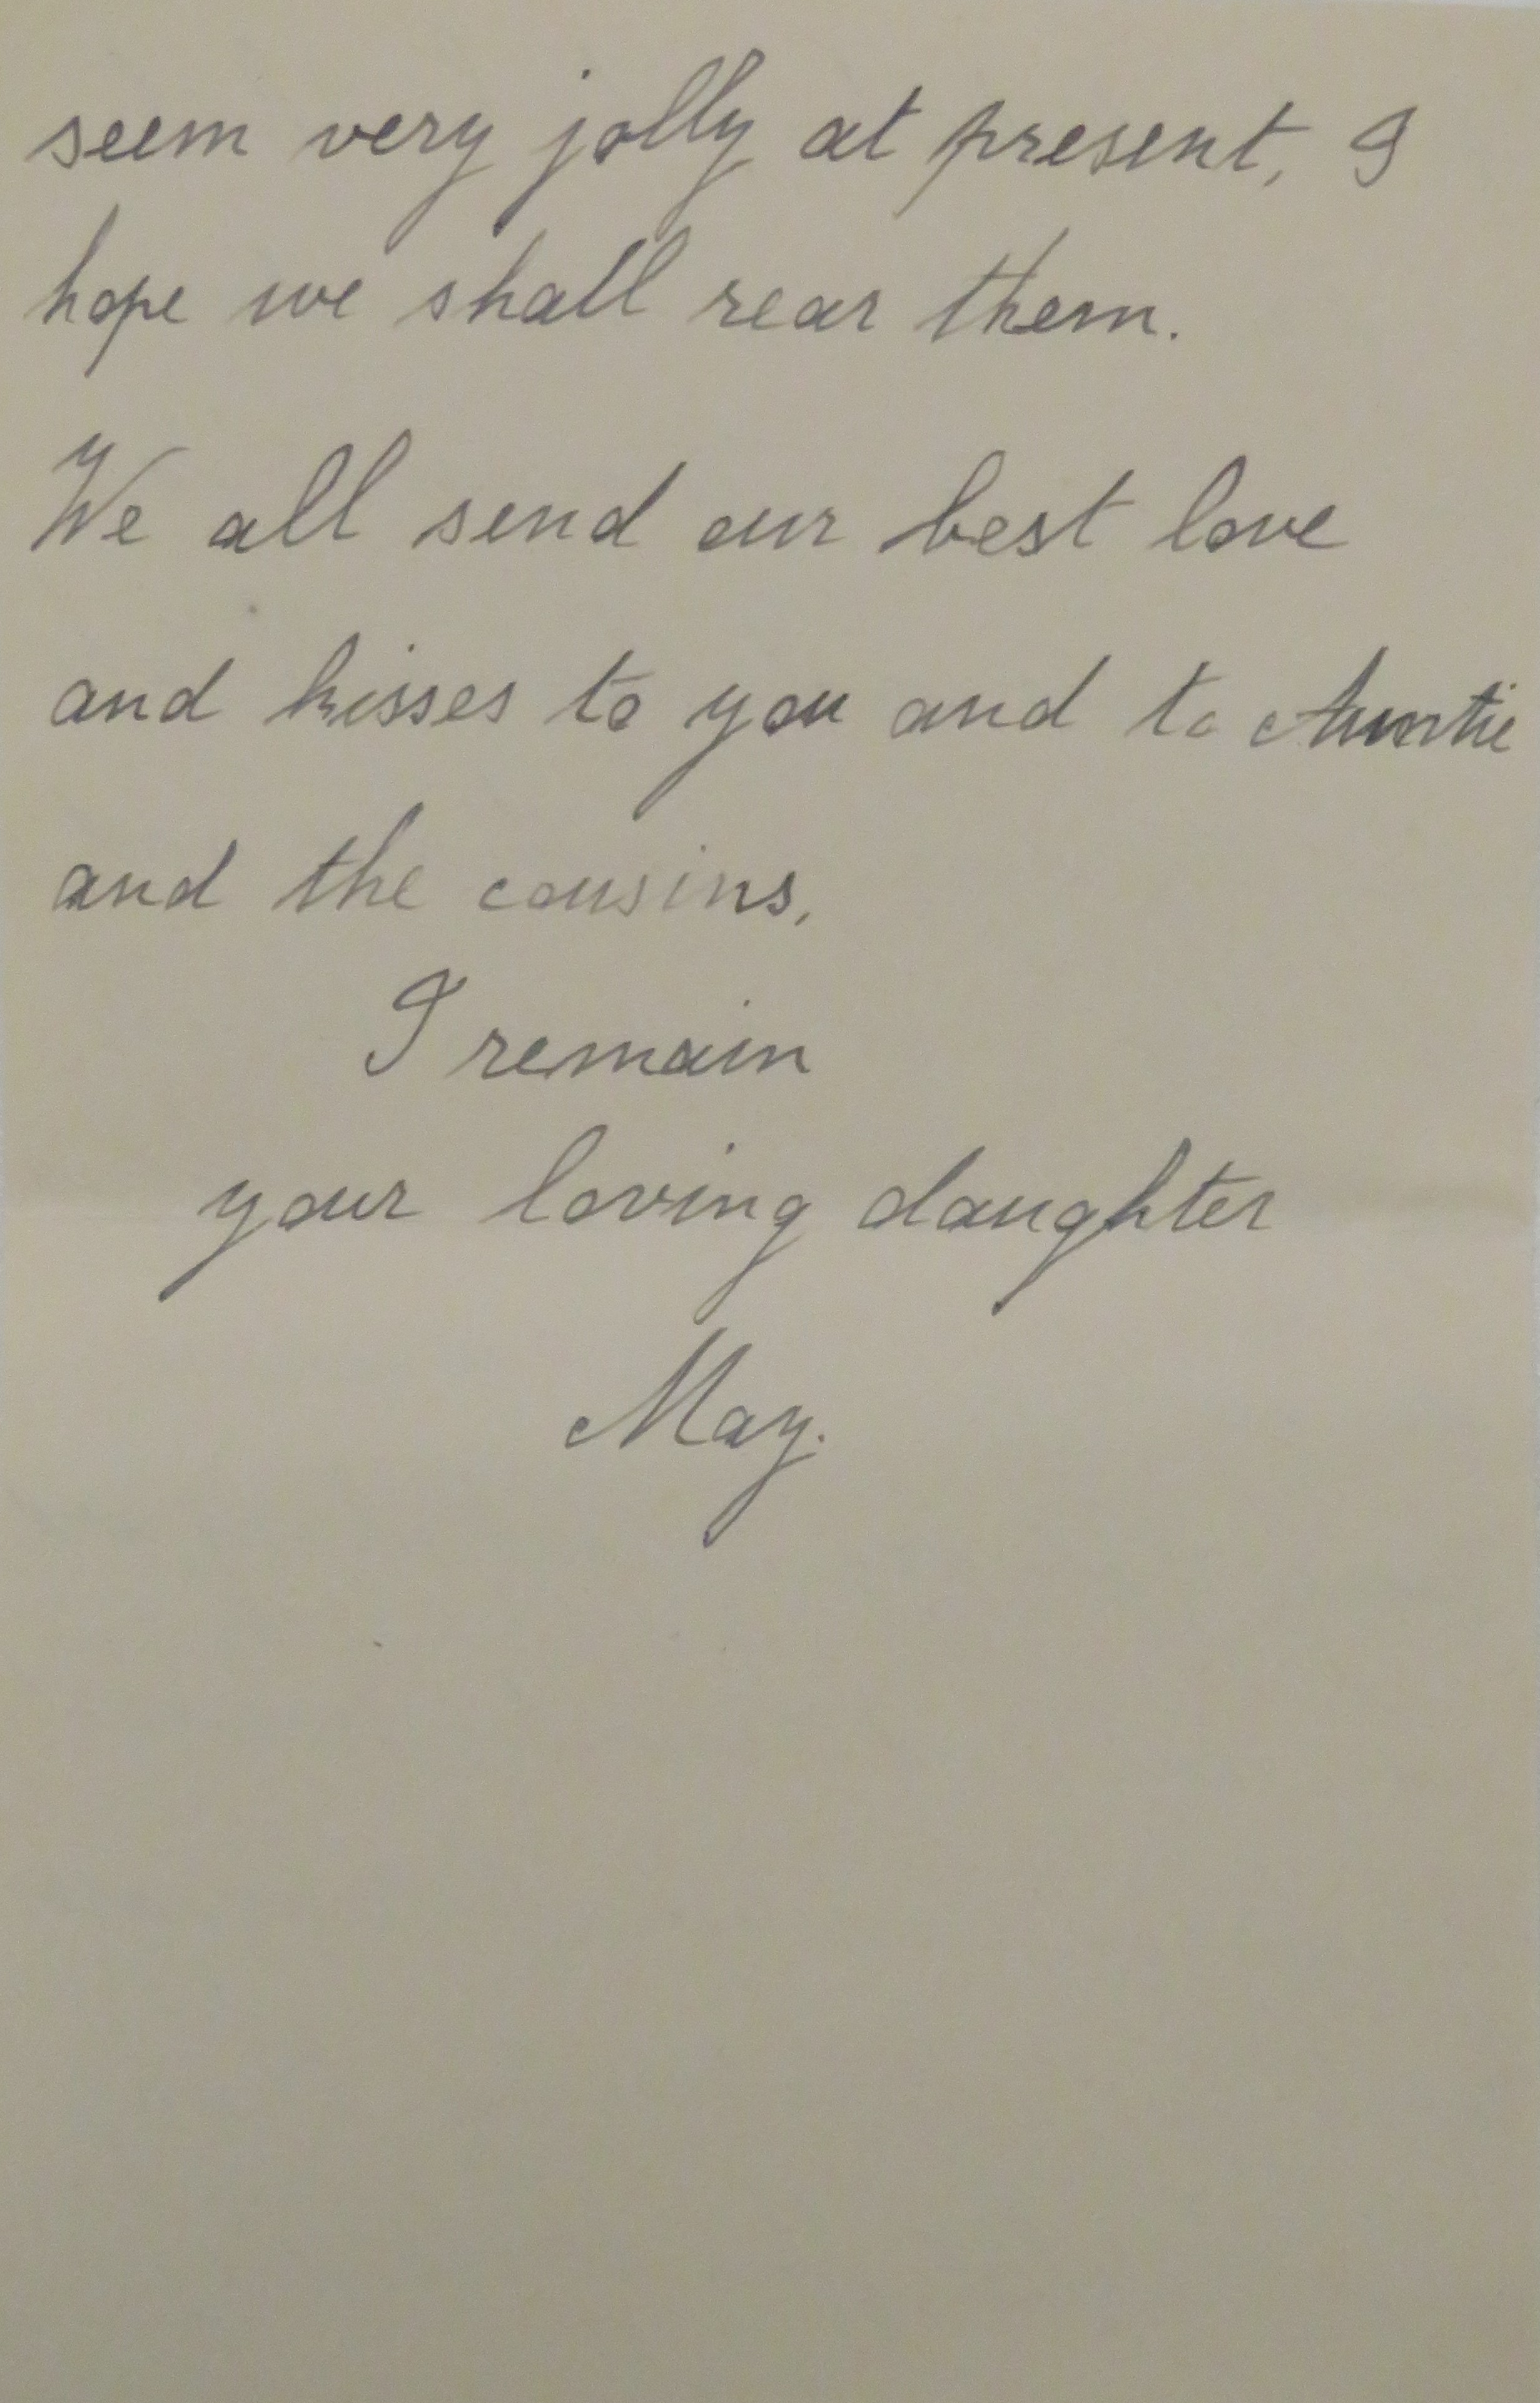 seem very jolly at present, I
hope we shall rear them.
We all send our best love
and kisses to you and to Auntie
and the cousins,
I remain
your loving daughter
May.